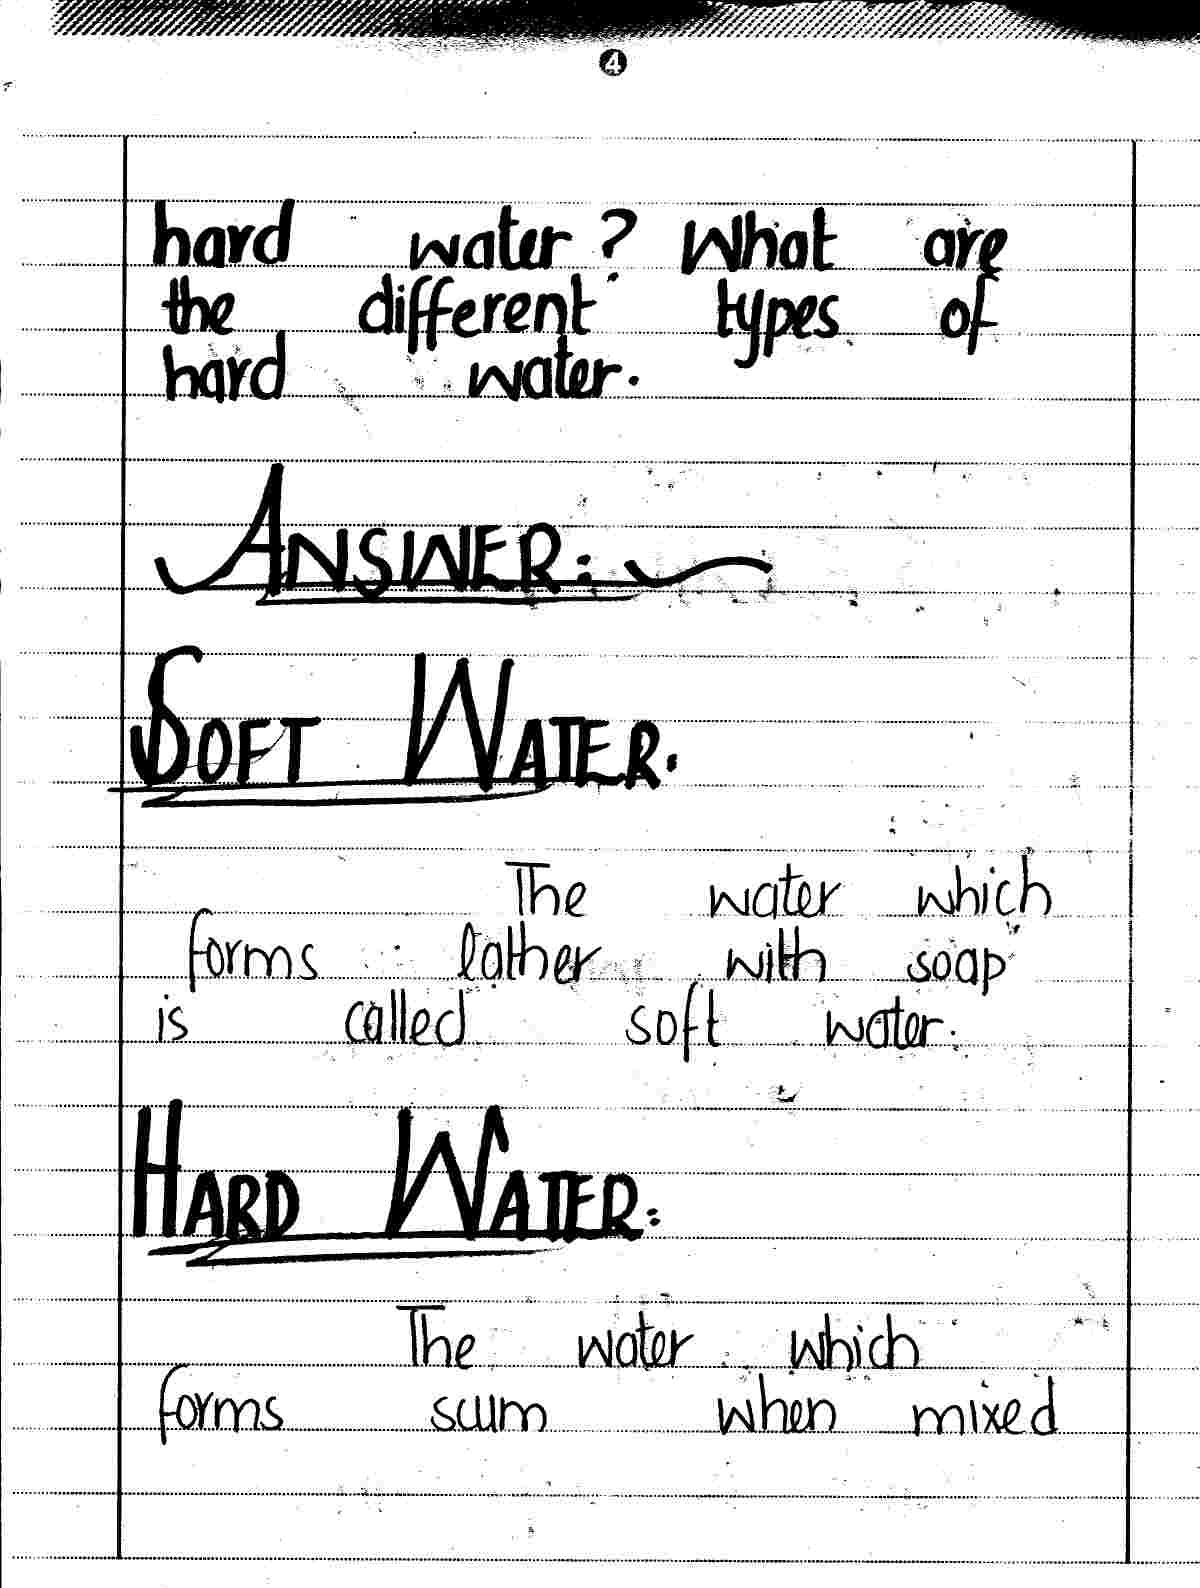 4
hard water? What are
the different types of
hard water.
ANSWER:
SOFT WATER.
The water which
forms lather with soap
is called soft water.
HARD WATER:
The water which
forms scum when mixed